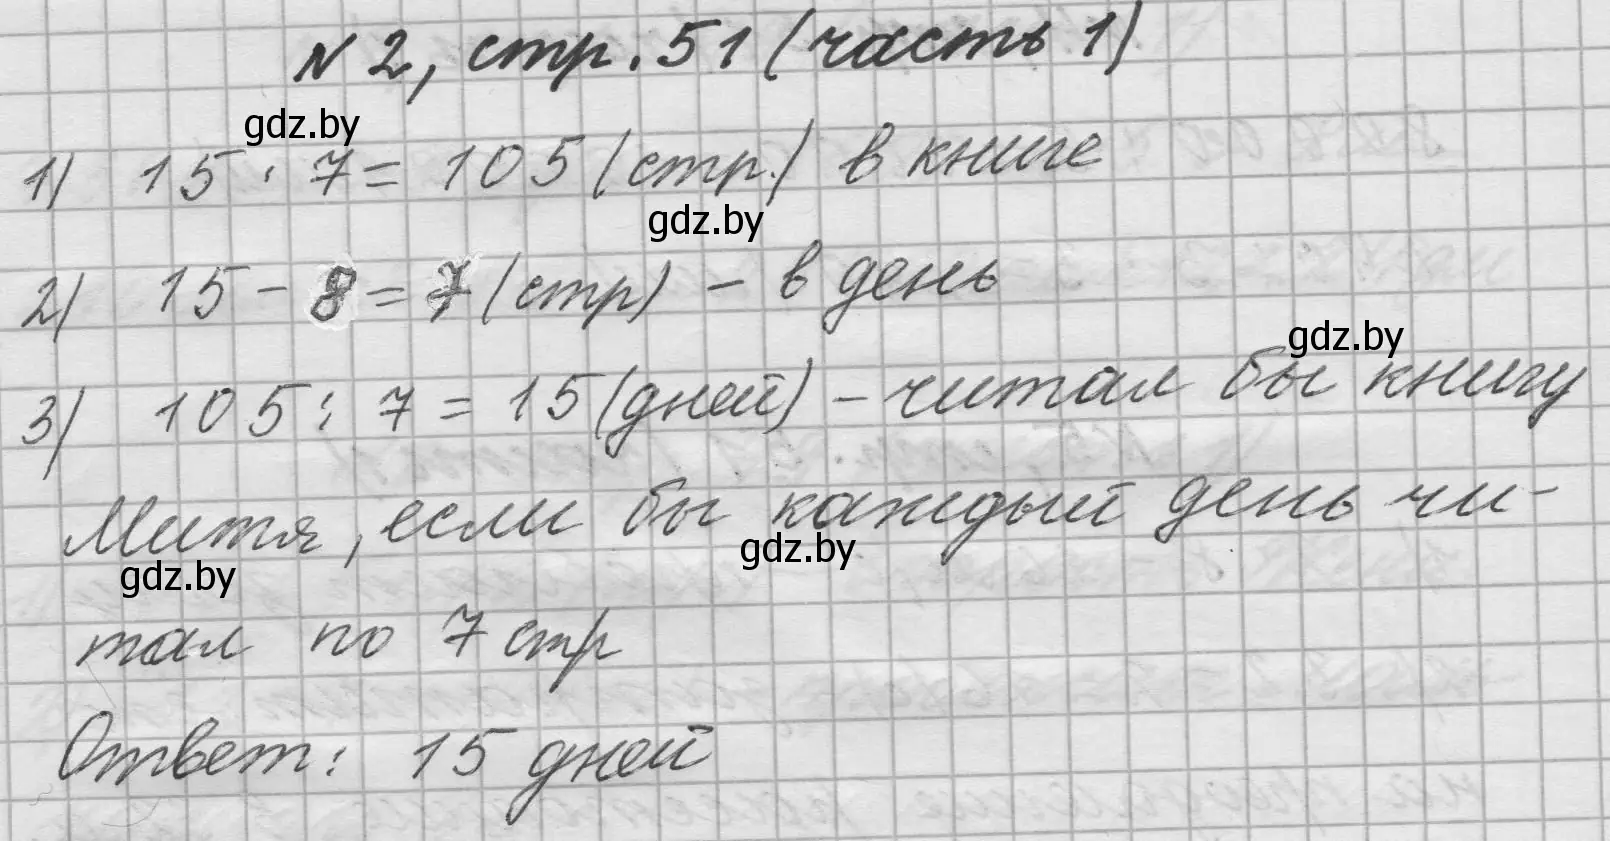 № 2, стр. 51 (часть 1)
gdz.by
1) 15 · 7 = 105 (стр.) в книге
gdz.by
2) 15 - 8 = 7 (стр) - в день
gdz.by
3) 105 : 7 = 15 (дней) - читал бы книгу
Митя, если бы каждый день чи-
gdz.by
gdz.by
тал по 7 стр
Ответ: 15 дней